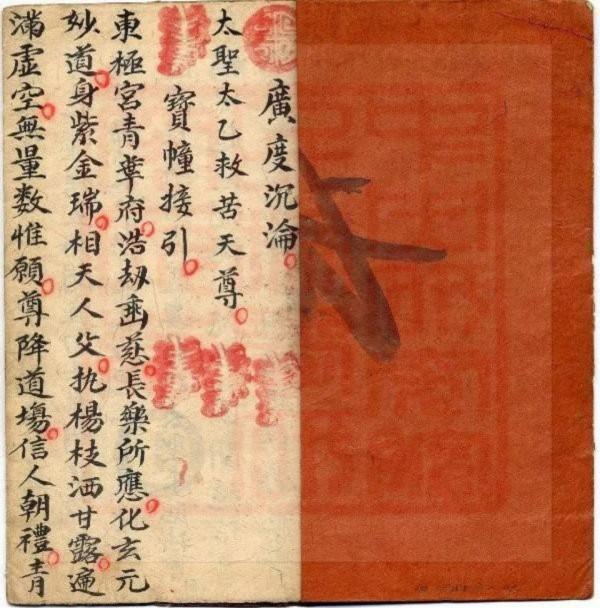 廣度沉淪
太聖太乙救苦天尊
寶幢接引
東極宮青華府浩劫垂慈長樂所應化玄元
妙道身紫金瑞相天人父執楊枝洒甘露遍
滿虛空無量数惟願尊降道場信人朝禮青